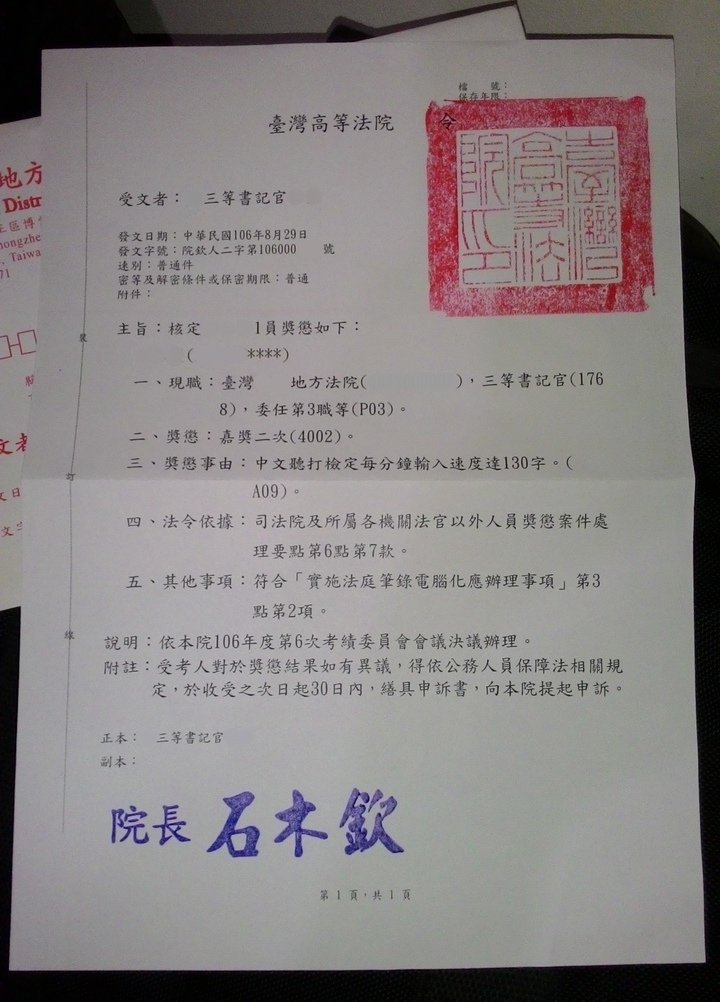 檔　　號：
保存年限：
臺灣高等法院　　令
受文者：　三等書記官
發文日期：中華民國106年8月29日
發文字號：院欽人二字第106000　　號
速別：普通件
密等及解密條件或保密期限：普通
附件：
主旨：核定　　　1員獎懲如下：
(　　　****)
一、現職：臺灣　　地方法院(　　　　　)，三等書記官(176
8)，委任第3職等(P03)。
二、獎懲：嘉獎二次(4002)。
三、獎懲事由：中文聽打檢定每分鐘輸入速度達130字。(
A09)。
四、法令依據：司法院及所屬各機關法官以外人員獎懲案件處
理要點第6點第7款。
五、其他事項：符合「實施法庭筆錄電腦化應辦理事項」第3
點第2項。
說明：依本院106年度第6次考績委員會會議決議辦理。
附註：受考人對於獎懲結果如有異議，得依公務人員保障法相關規
定，於收受之次日起30日內，繕具申訴書，向本院提起申訴。
正本：　三等書記官
副本：
院長 石木欽
第 1 頁，共 1 頁
裝
訂
線
臺灣高等法院之印
地方
Distr
, Taiwa
71